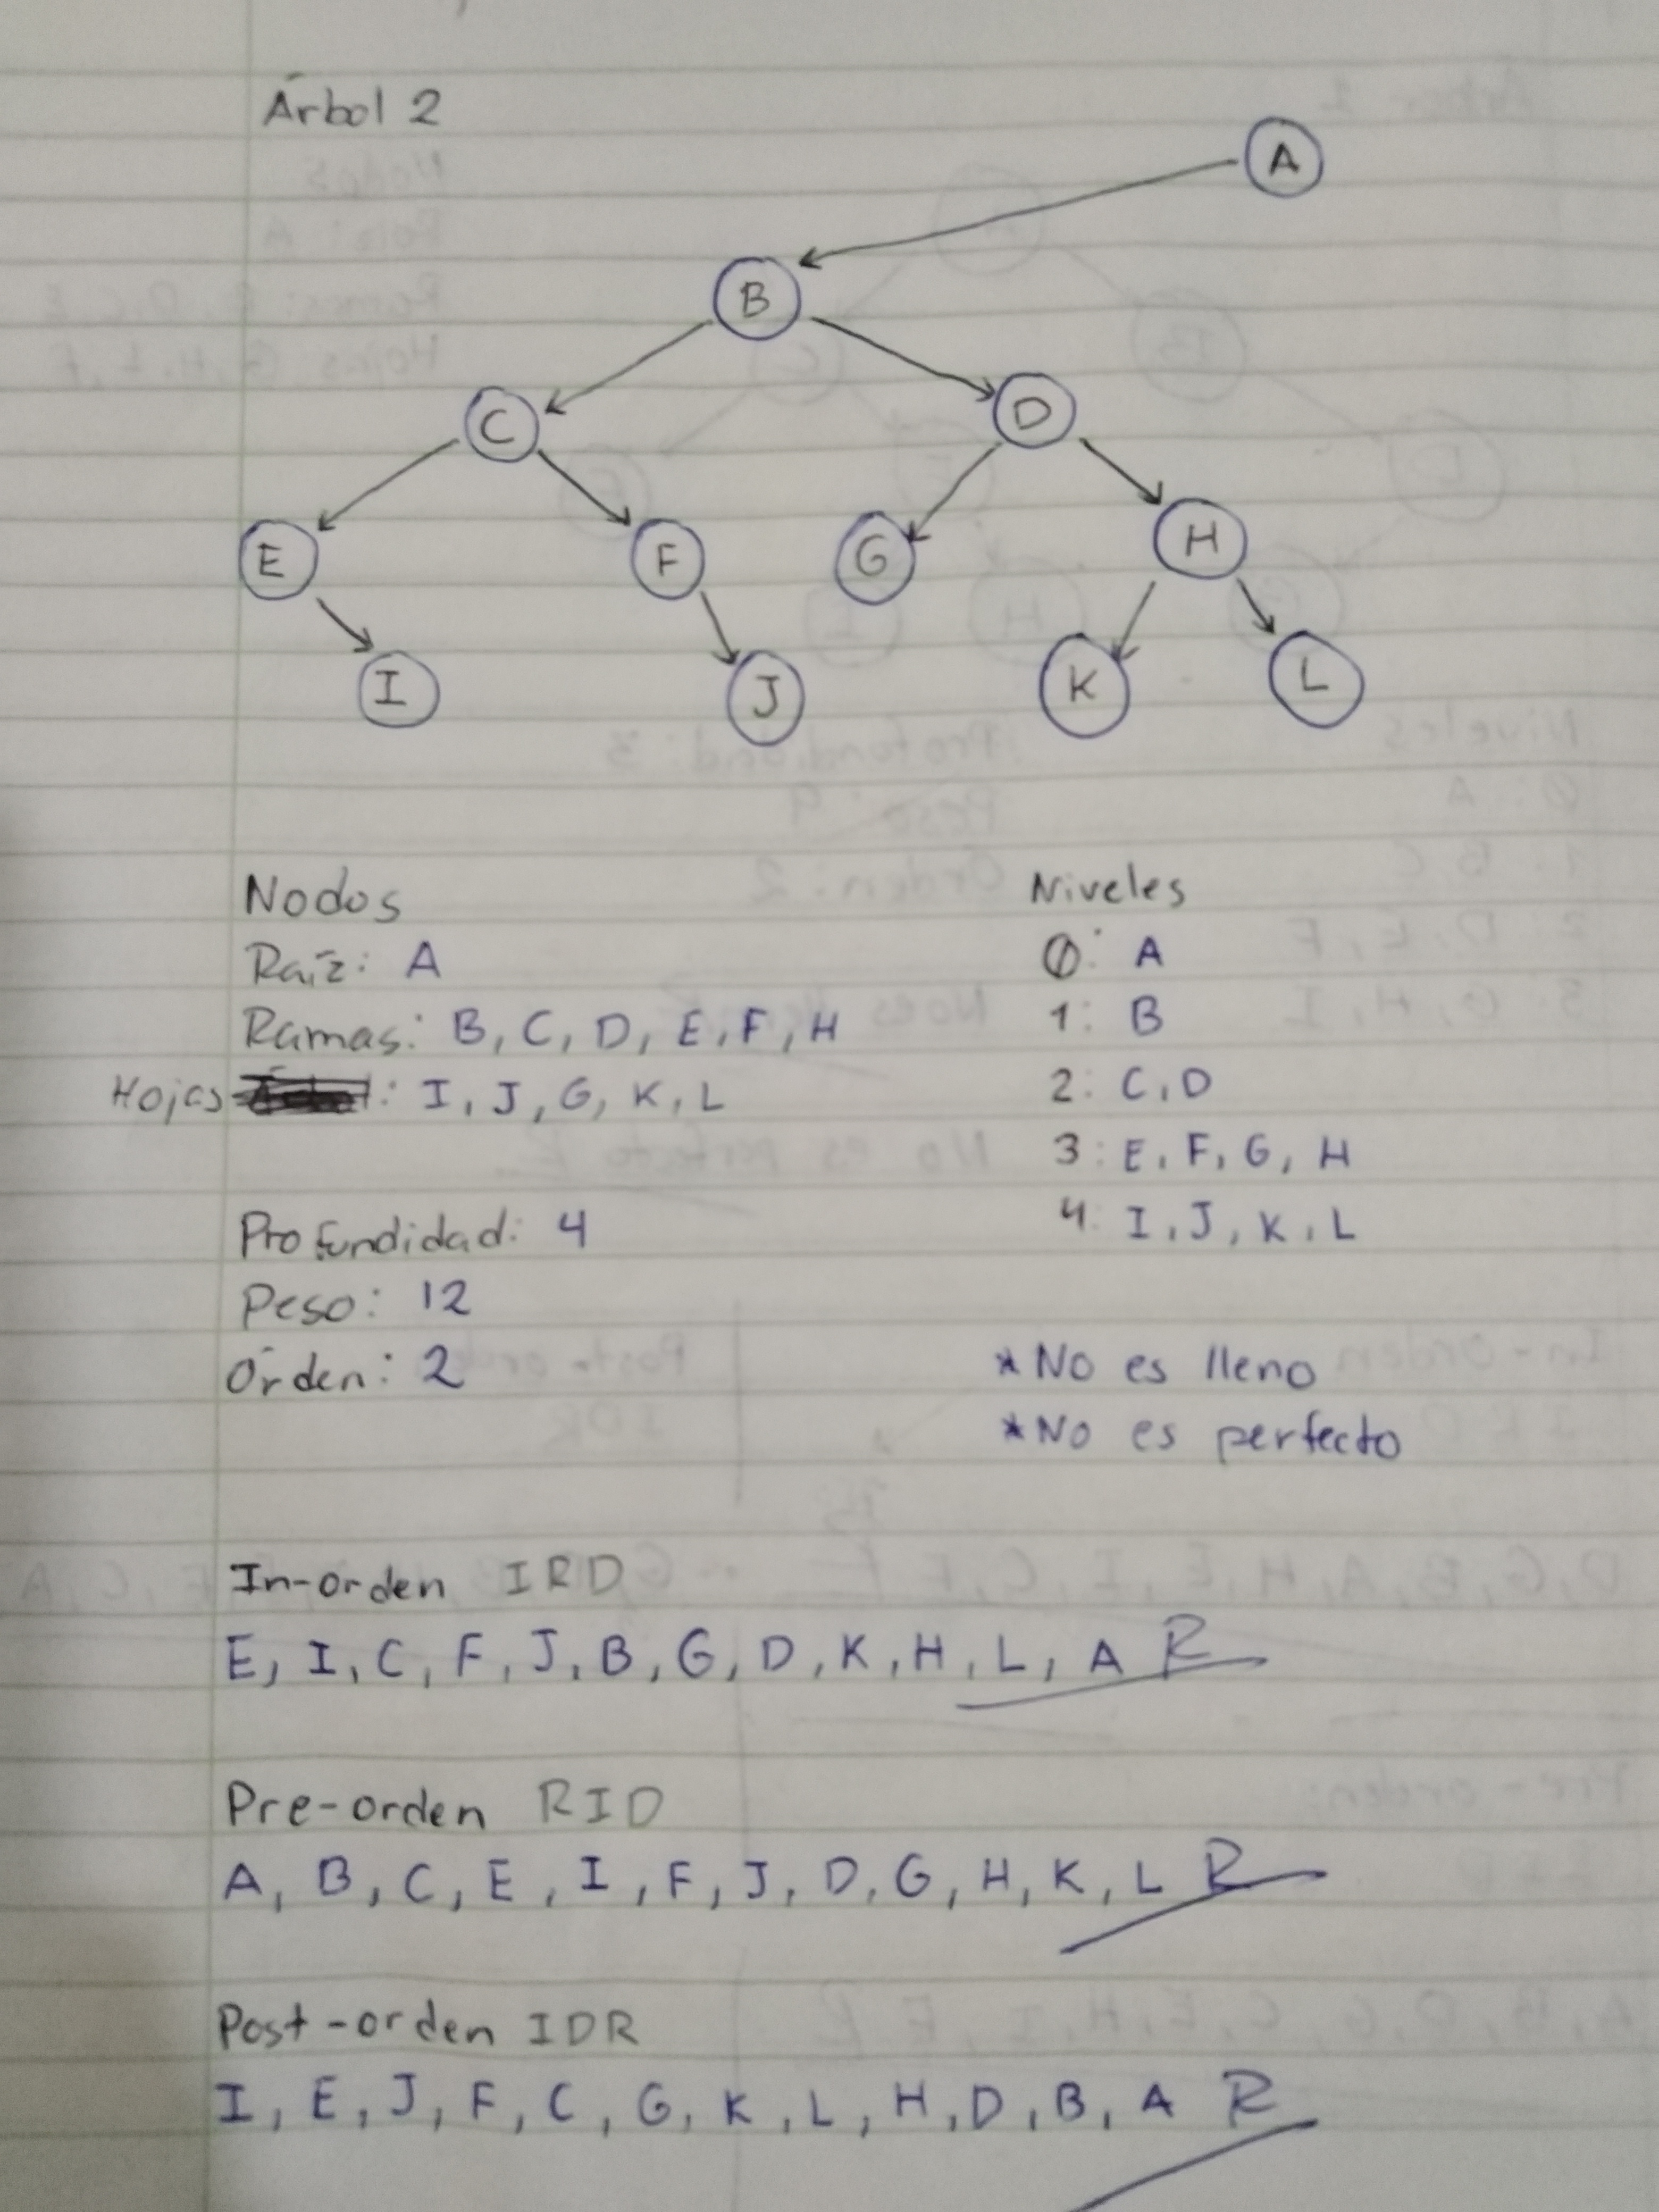 Árbol 2
A
B
C
D
E
F
G
H
I
J
K
L
Nodos
Raíz: A
Ramas: B, C, D, E, F, H
Hojas : I, J, G, K, L
Profundidad: 4
Peso: 12
Órden: 2
Niveles
0: A
1: B
2: C, D
3: E, F, G, H
4: I, J, K, L
*No es lleno
*No es perfecto
In-orden IRD
E, I, C, F, J, B, G, D, K, H, L, A R
Pre-orden RID
A, B, C, E, I, F, J, D, G, H, K, L R
Post-orden IDR
I, E, J, F, C, G, K, L, H, D, B, A R